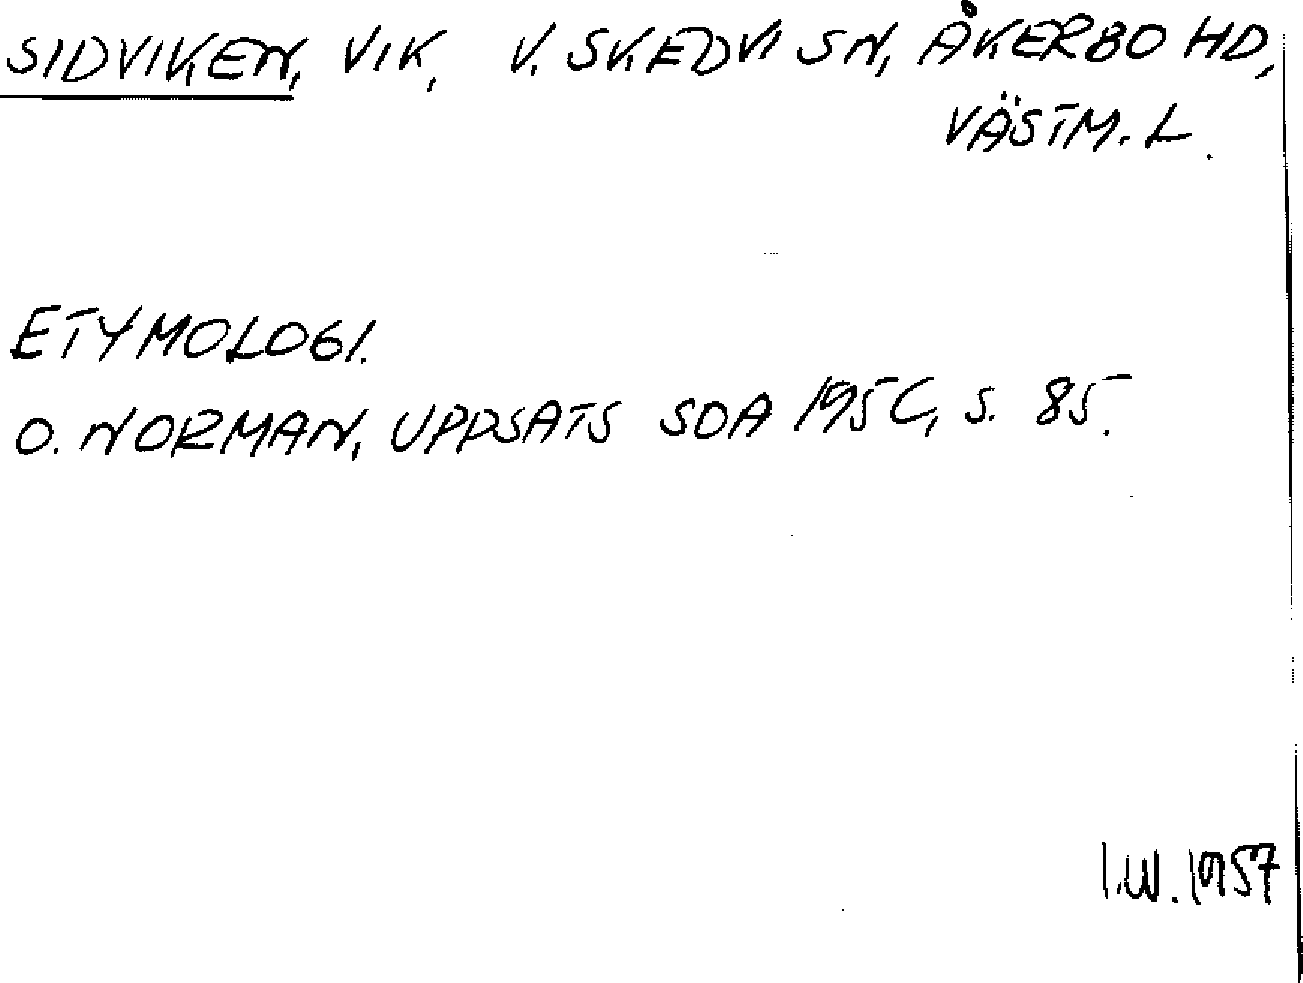 SIDVIKEN, VIK, V. SKEDVI SN, ÅKERBO HD,
VÄSTM. L.
ETYMOLOGI.
O. NORMAN, UPPSATS SOA 1950, S. 85.
I.W. 1957